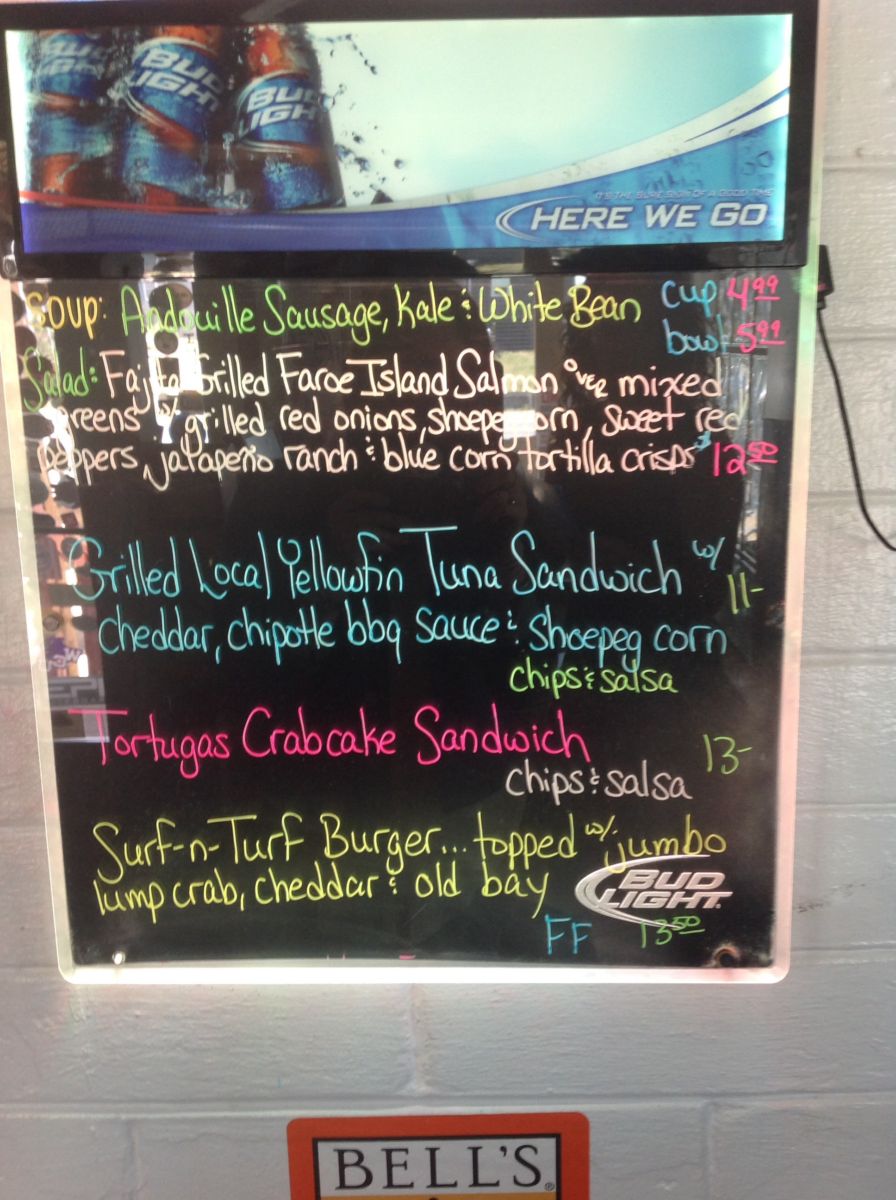 BUD LIGHT
BUD LIGHT
BUD LIGHT
IT'S THE SURE SIGN OF A GOOD TIME
HERE WE GO
Soup: Andouille Sausage, Kale & White Bean cup 4.99
bowl 5.99
Salad: Fajita Grilled Faroe Island Salmon over mixed
greens w/ grilled red onions, shoepeg corn, sweet red
peppers, jalapeño ranch & blue corn tortilla crisps 12.50
Grilled Local Yellowfin Tuna Sandwich w/
11-
cheddar, chipotle bbq sauce & shoepeg corn
chips & salsa
Tortugas Crabcake Sandwich 13-
chips & salsa
Surf-n-Turf Burger... topped w/ jumbo
lump crab, cheddar & old bay
BUD LIGHT.
FF 13.50
BELL'S